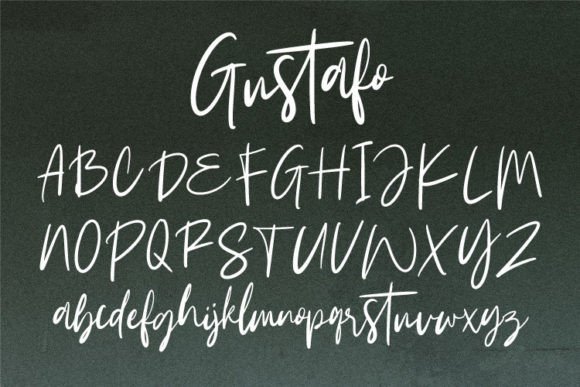 Gustafo
ABCDEFGHIJKLM
NOPQRSTUVWXYZ
abcdefghijklmnopqrstuvwxyz